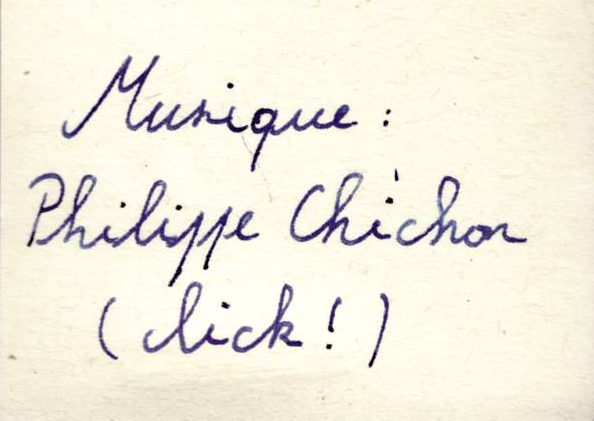 Musique :
Philippe Chichon
(click !)